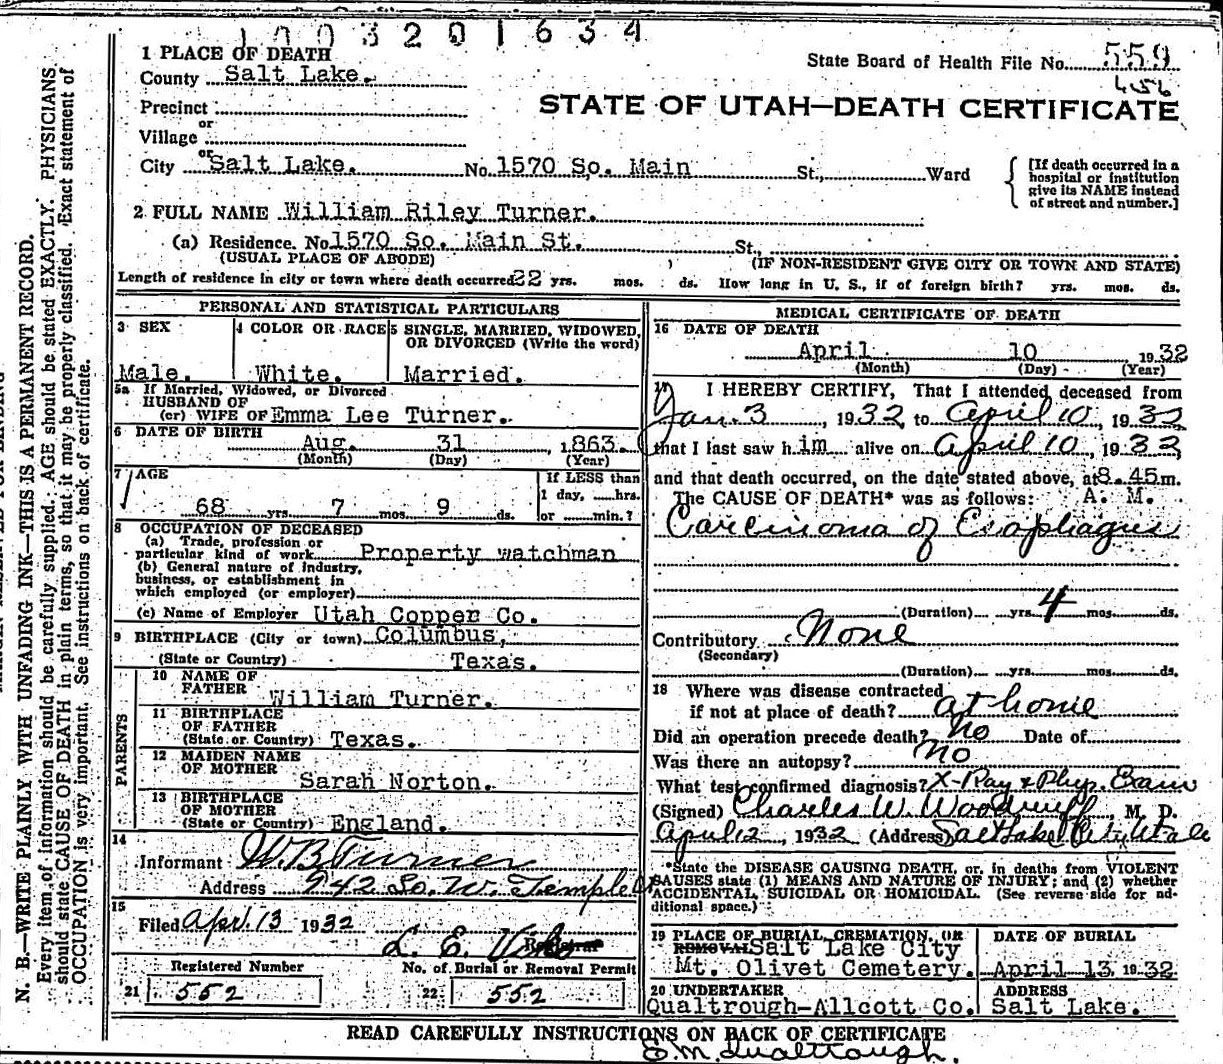 1003201634
1 PLACE OF DEATH
State Board of Health File No. 559
County Salt Lake.
456
Precinct
STATE OF UTAH—DEATH CERTIFICATE
or
Village
or
City Salt Lake. No. 1570 So. Main St., Ward
[If death occurred in a hospital or institution give its NAME instead of street and number.]
2 FULL NAME William Riley Turner.
(a) Residence. No 1570 So. Main St. St.,
(USUAL PLACE OF ABODE) (IF NON-RESIDENT GIVE CITY OR TOWN AND STATE)
Length of residence in city or town where death occurred 22 yrs. mos. ds. How long in U. S., if of foreign birth? yrs. mos. ds.
PERSONAL AND STATISTICAL PARTICULARS
3 SEX
Male.
4 COLOR OR RACE
White.
5 SINGLE, MARRIED, WIDOWED, OR DIVORCED (Write the word)
Married.
5a If Married, Widowed, or Divorced
HUSBAND OF
(or) WIFE OF Emma Lee Turner.
6 DATE OF BIRTH
Aug. 31 1863.
(Month) (Day) (Year)
7 AGE
68 yrs. 7 mos. 9 ds.
If LESS than
1 day, hrs.
or min.?
8 OCCUPATION OF DECEASED
(a) Trade, profession or
particular kind of work Property watchman
(b) General nature of industry,
business, or establishment in
which employed (or employer)
(c) Name of Employer Utah Copper Co.
9 BIRTHPLACE (City or town) Columbus,
(State or Country) Texas.
PARENTS
10 NAME OF
FATHER William Turner.
11 BIRTHPLACE
OF FATHER
(State or Country) Texas.
12 MAIDEN NAME
OF MOTHER
Sarah Norton.
13 BIRTHPLACE
OF MOTHER
(State or Country) England.
14
Informant W.B Turner
Address 942 So. W. Temple
15
Filed Apr. 13 1932
L. E.
Registrar
Registered Number
21 552
No. of Burial or Removal Permit
22 552
MEDICAL CERTIFICATE OF DEATH
16 DATE OF DEATH
April 10 1932
(Month) (Day) (Year)
17 I HEREBY CERTIFY, That I attended deceased from
Jan. 3, 1932, to April 10, 1932,
that I last saw h im alive on April 10, 1932,
and that death occurred, on the date stated above, at 8.45 m.
The CAUSE OF DEATH* was as follows: A. M.
Carcinoma of Esophagus
(Duration) yrs. 4 mos. ds.
Contributory None
(Secondary)
(Duration) yrs. mos. ds.
18 Where was disease contracted
if not at place of death? at home
Did an operation precede death? No Date of
Was there an autopsy? No
What test confirmed diagnosis? X-Ray & Phys. Exam
(Signed) Charles W. Woodruff, M. D.
April 12, 1932 (Address) Salt Lake City Utah
*State the DISEASE CAUSING DEATH, or, in deaths from VIOLENT
CAUSES state (1) MEANS AND NATURE OF INJURY; and (2) whether
ACCIDENTAL, SUICIDAL OR HOMICIDAL. (See reverse side for ad-
ditional space.)
19 PLACE OF BURIAL, CREMATION, OR
REMOVAL Salt Lake City
Mt. Olivet Cemetery.
DATE OF BURIAL
April 13, 1932
20 UNDERTAKER
Qualtrough-Allcott Co.
ADDRESS
Salt Lake.
READ CAREFULLY INSTRUCTIONS ON BACK OF CERTIFICATE
E.M. Qualtrough.
N. B.—WRITE PLAINLY WITH UNFADING INK—THIS IS A PERMANENT RECORD.
Every item of information should be carefully supplied. AGE should be stated EXACTLY. PHYSICIANS
should state CAUSE OF DEATH in plain terms, so that it may be properly classified. Exact statement of
OCCUPATION is very important. See instructions on back of certificate.